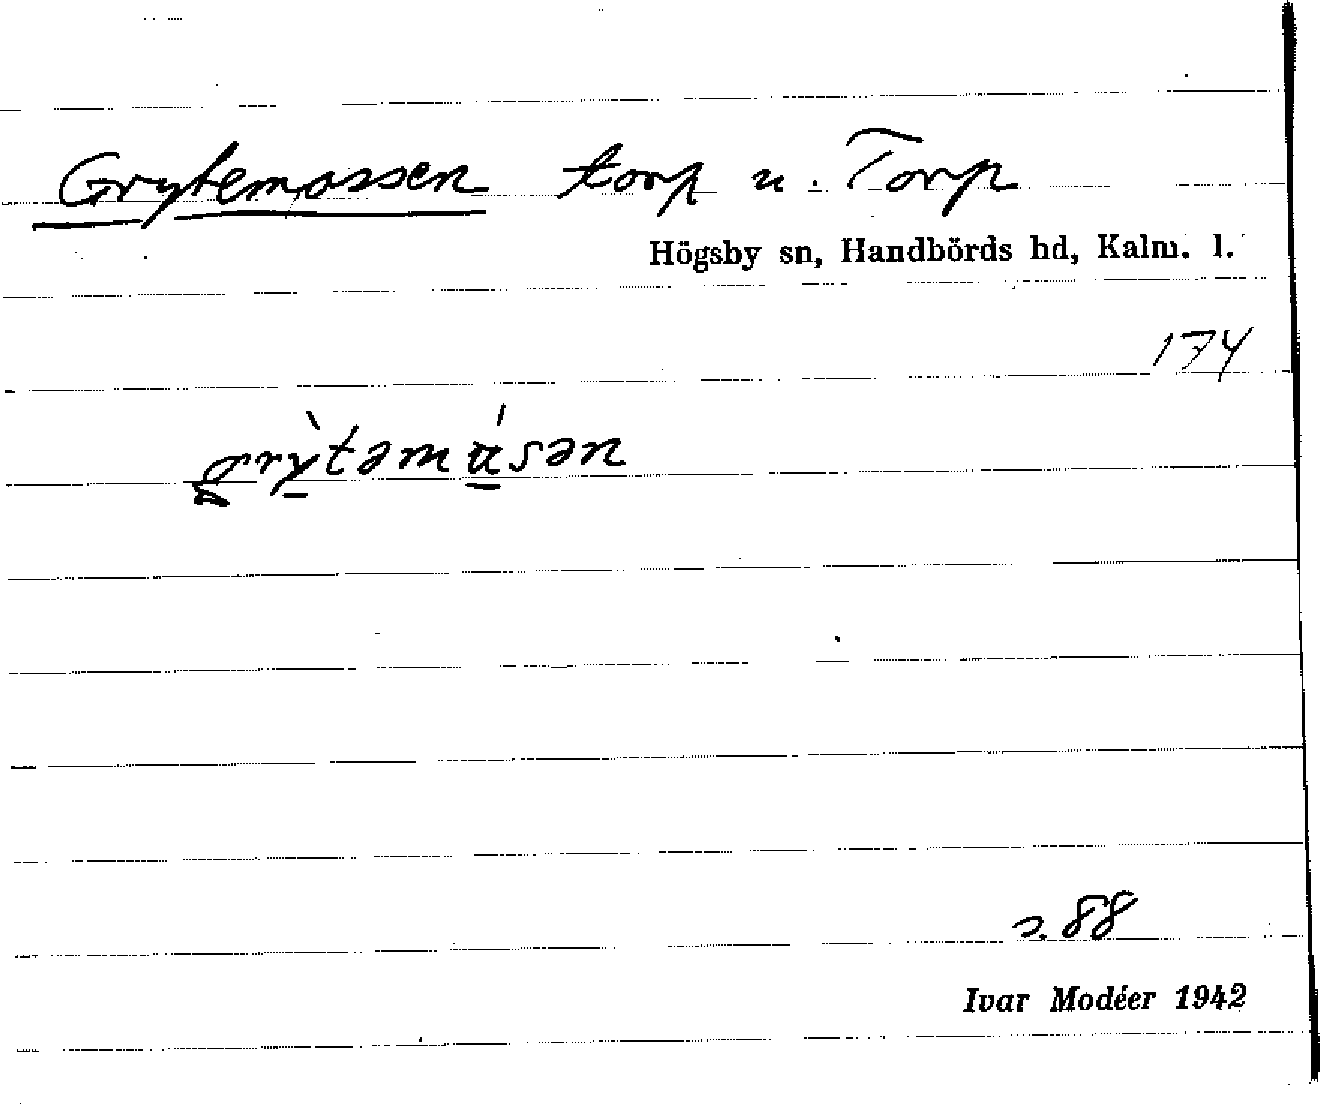 Grytemossen torp u. Torp
Högsby sn, Handbörds hd, Kalm. l.
174
grỳtəmúsən
s. 88
Ivar Modéer 1942